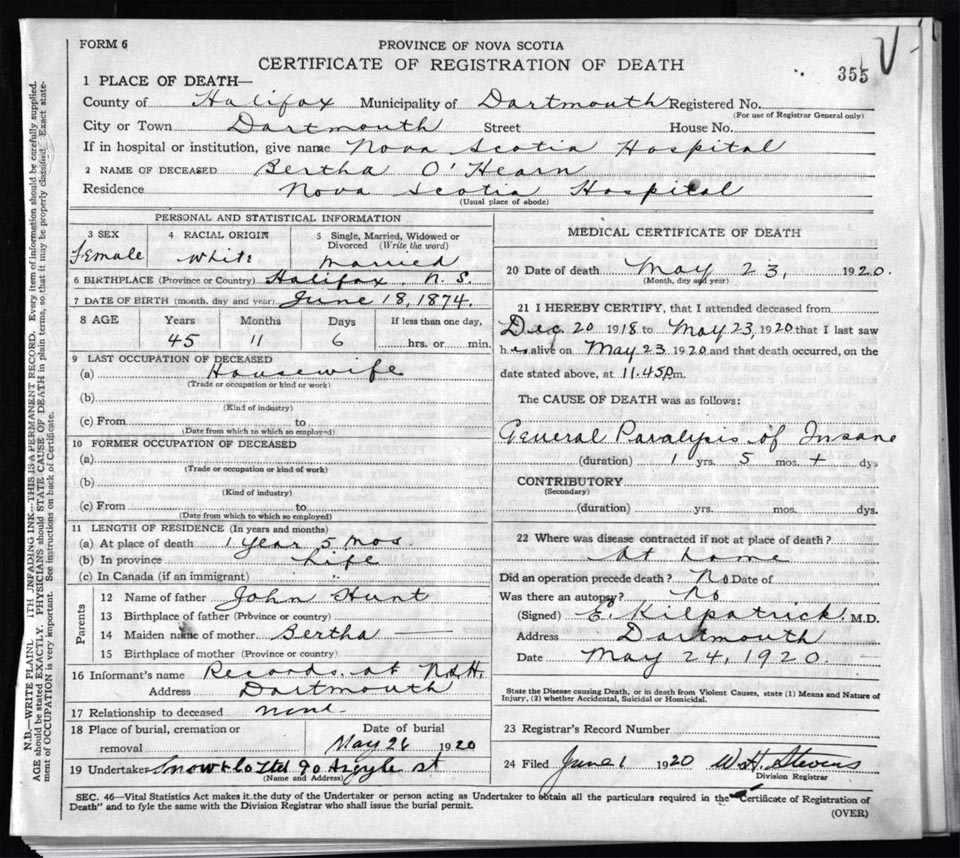 FORM 6
PROVINCE OF NOVA SCOTIA
CERTIFICATE OF REGISTRATION OF DEATH
355
1 PLACE OF DEATH—
County of Halifax Municipality of Dartmouth Registered No.
(For use of Registrar General only)
City or Town Dartmouth Street House No.
If in hospital or institution, give name Nova Scotia Hospital
2 NAME OF DECEASED Bertha O'Hearn
Residence Nova Scotia Hospital
(Usual place of abode)
PERSONAL AND STATISTICAL INFORMATION
3 SEX 4 RACIAL ORIGIN 5 Single, Married, Widowed or
Divorced (Write the word)
Female White Married
6 BIRTHPLACE (Province or Country) Halifax. N.S.
7 DATE OF BIRTH (month, day and year) June 18, 1874.
8 AGE Years Months Days If less than one day,
45 11 6 hrs. or min.
9 LAST OCCUPATION OF DECEASED
(a) Housewife
(Trade or occupation or kind or work)
(b)
(Kind of industry)
(c) From to
(Date from which to which so employed)
10 FORMER OCCUPATION OF DECEASED
(a)
(Trade or occupation or kind of work)
(b)
(Kind of industry)
(c) From to
(Date from which to which so employed)
11 LENGTH OF RESIDENCE (In years and months)
(a) At place of death 1 Year 5 mos.
(b) In province Life
(c) In Canada (if an immigrant) "
Parents
12 Name of father John Hunt
13 Birthplace of father (Province or country)
14 Maiden name of mother Bertha —
15 Birthplace of mother (Province or country)
16 Informant's name Records at N.S.H.
Address Dartmouth
17 Relationship to deceased none
18 Place of burial, cremation or Date of burial
removal May 26 1920
19 Undertaker Snow & Co Ltd 90 Argyle st
(Name and Address)
MEDICAL CERTIFICATE OF DEATH
20 Date of death May 23, 1920.
(Month, day and year)
21 I HEREBY CERTIFY, that I attended deceased from
Dec. 20 1918 to May 23, 1920 that I last saw
her alive on May 23 1920 and that death occurred, on the
date stated above, at 11.45 p.m.
The CAUSE OF DEATH was as follows:
General Paralysis of Insane
(duration) 1 yrs. 5 mos. + dys
CONTRIBUTORY
(Secondary)
(duration) yrs. mos. dys.
22 Where was disease contracted if not at place of death?
At home
Did an operation precede death? No Date of
Was there an autopsy? No
(Signed) E. Kilpatrick. M.D.
Address Dartmouth
Date May 24, 1920.
State the Disease causing Death, or in death from Violent Causes, state (1) Means and Nature of
Injury, (2) whether Accidental, Suicidal or Homicidal.
23 Registrar's Record Number
24 Filed June 1 1920 W.H. Stevens
Division Registrar
SEC. 46—Vital Statistics Act makes it the duty of the Undertaker or person acting as Undertaker to obtain all the particulars required in the "Certificate of Registration of
Death" and to fyle the same with the Division Registrar who shall issue the burial permit.
(OVER)
N.B.—WRITE PLAINL ITH UNFADING INK—THIS IS A PERMANENT RECORD. Every item of information should be carefully supplied.
AGE should be stated EXACTLY. PHYSICIANS should STATE CAUSE OF DEATH in plain terms, so that it may be properly classified. Exact state-
ment of OCCUPATION is very important. See instructions on back of Certificate.